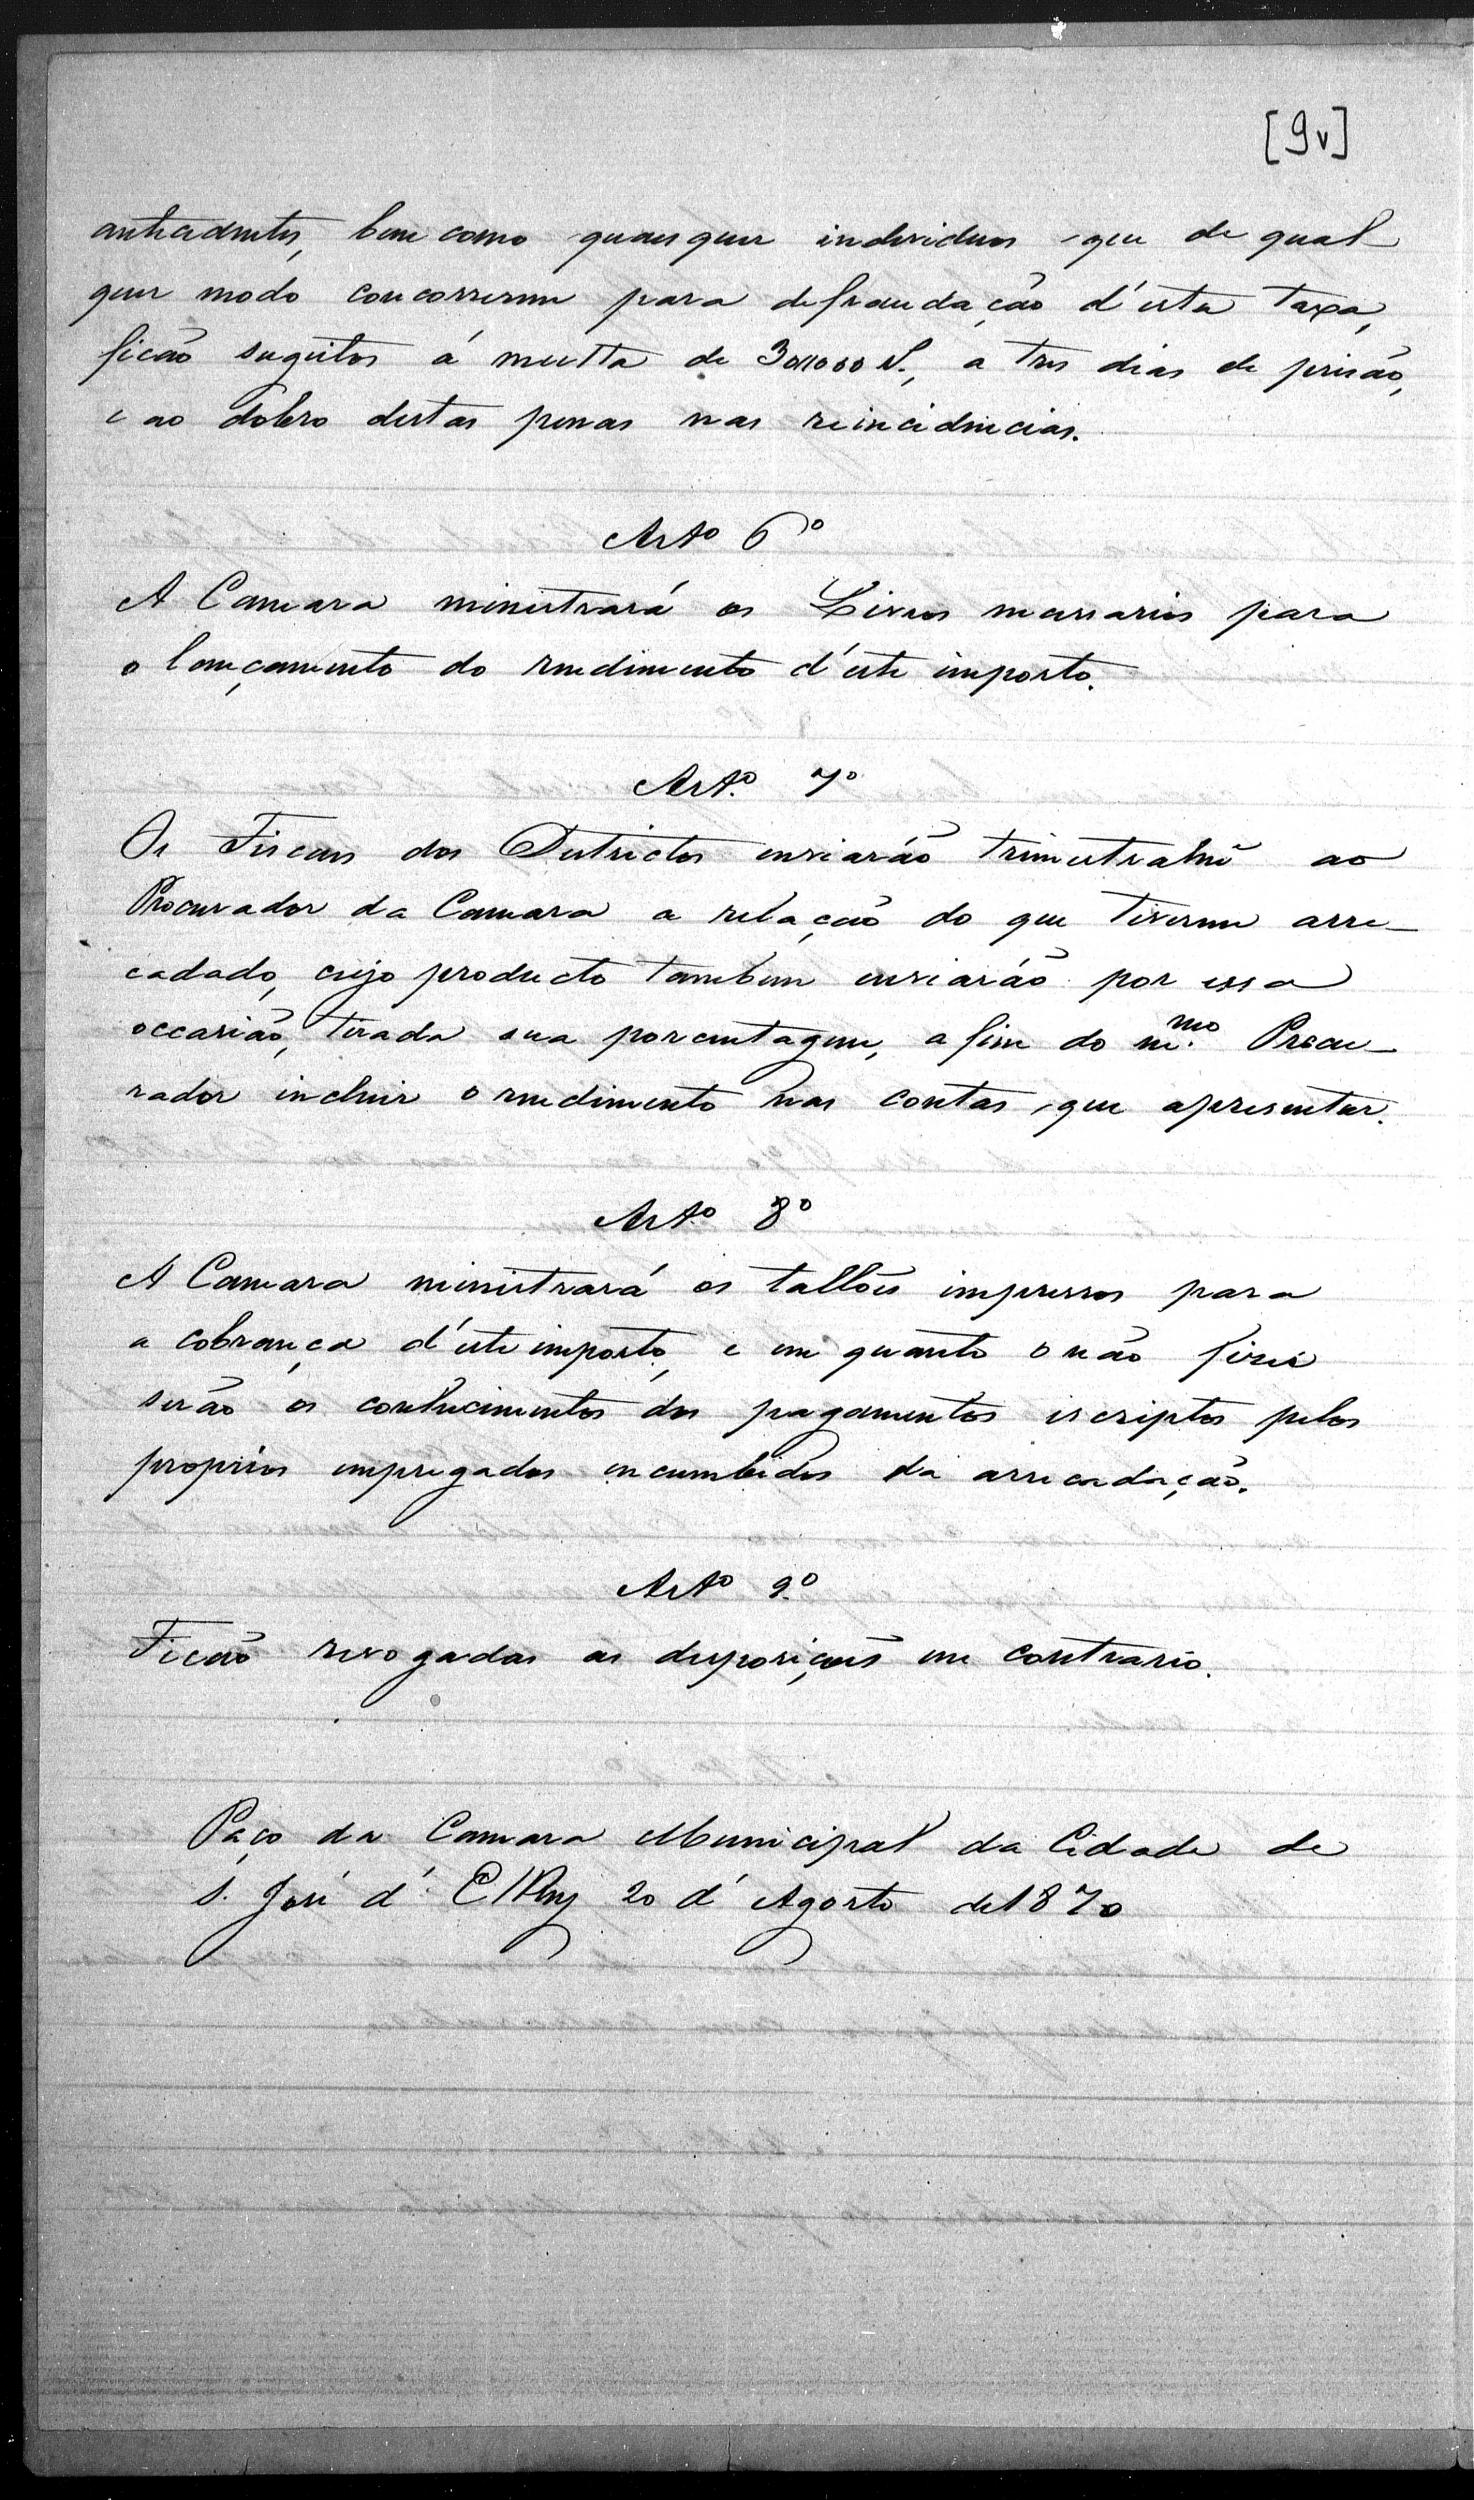 [9v]
antecedentes, bem como quaes quer individuos que de qual
quer modo concorrerem para defraudação d'esta taxa,
ficão sugeitos á multa de 30$000 rs., a tres dias de prisão,
e ao dobro destas penas nas reincidencias.
Artº 6º
A Camara ministrará os Livros necessarios para
o lançamento do rendimento d'este imposto.
Artº. 7º
Os Fiscaes dos Districtos enviarão trimestralmẽ ao
Procurador da Camara a relação do que tiverem arre-
cadado, cujo producto tambem enviarão por essa
occasião, tirada sua porcentagem, a fim do m.mo Procu-
rador incluir o rendimento nas contas que apresentar.
Artº 8º
A Camara ministrará os tallões impressos para
a cobrança d'este imposto, e em quanto o não fizer
serão os conhecimentos dos pagamentos iscriptos pelos
proprios empregados encumbidos da arrecadação.
Artº 9.º
Ficão revogadas as desposições em contrario.
Paço da Camara Municipal da Cidade de
S. José d' El Rey 20 d' Agosto de 1870